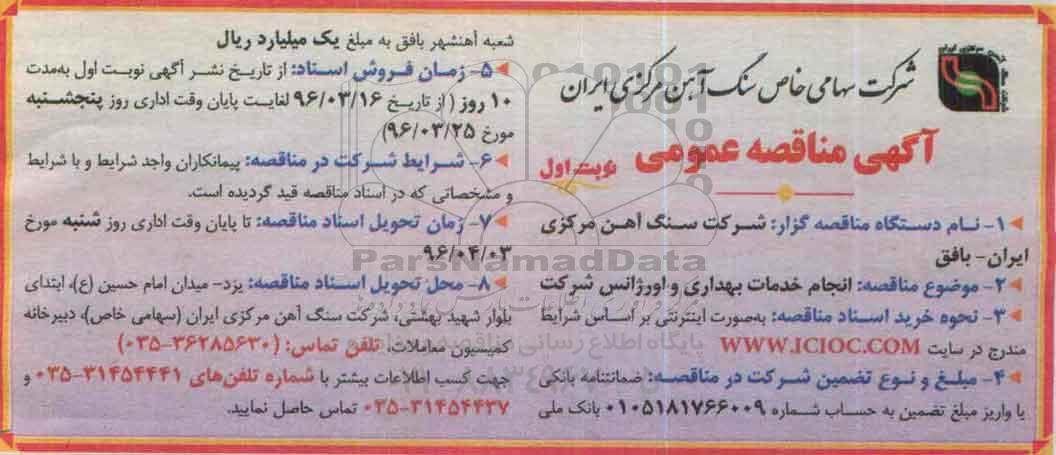 شرکت سهامی خاص سنگ آهن مرکزی ایران
آگهی مناقصه عمومی نوبت اول
۱- نـام دسـتگاه مناقصه گزار: شـرکت سـنگ آهـن مرکزی
ایران- بافق
۲- موضوع مناقصه: انجام خدمات بهداری و اورژانس شرکت
۳- نحوه خرید اسـناد مناقصه: به‌صورت اینترنتی بر اسـاس شرایط
مندرج در سایت WWW.ICIOC.COM
۴- مبلـغ و نـوع تضمین شـرکت در مناقصـه: ضمانتنامه بانکی
یا واریز مبلغ تضمین به حسـاب شـماره ۰۱۰۵۱۸۱۷۶۶۰۰۹ بانک ملی
شعبه آهنشهر بافق به مبلغ یک میلیارد ریال
۵- زمـان فـروش اسـناد: از تاریخ نشـر آگهی نوبـت اول به‌مدت
۱۰ روز ( از تاریخ ۹۶/۰۳/۱۶ لغایـت پایان وقت اداری روز پنجشـنبه
مورخ ۹۶/۰۳/۲۵)
۶- شـرایط شـرکت در مناقصه: پیمانکاران واجد شرایط و با شرایط
و مشخصاتی که در اسناد مناقصه قید گردیده است.
۷- زمان تحویل اسناد مناقصه: تا پایان وقت اداری روز شنبه مورخ
۹۶/۰۴/۰۳
۸- محل تحویل اسـناد مناقصه: یزد- میدان امام حسین (ع)، ابتدای
بلوار شهید بهشتی، شرکت سنگ آهن مرکزی ایران (سهامی خاص)، دبیرخانه
کمیسیون معاملات، تلفن تماس: (۳۶۲۸۵۶۳۰-۰۳۵)
جهت کسب اطلاعات بیشتر با شماره تلفن‌های ۳۱۴۵۴۴۴۱-۰۳۵ و
۳۱۴۵۴۴۳۷-۰۳۵ تماس حاصل نمایید.
ParsNamadData